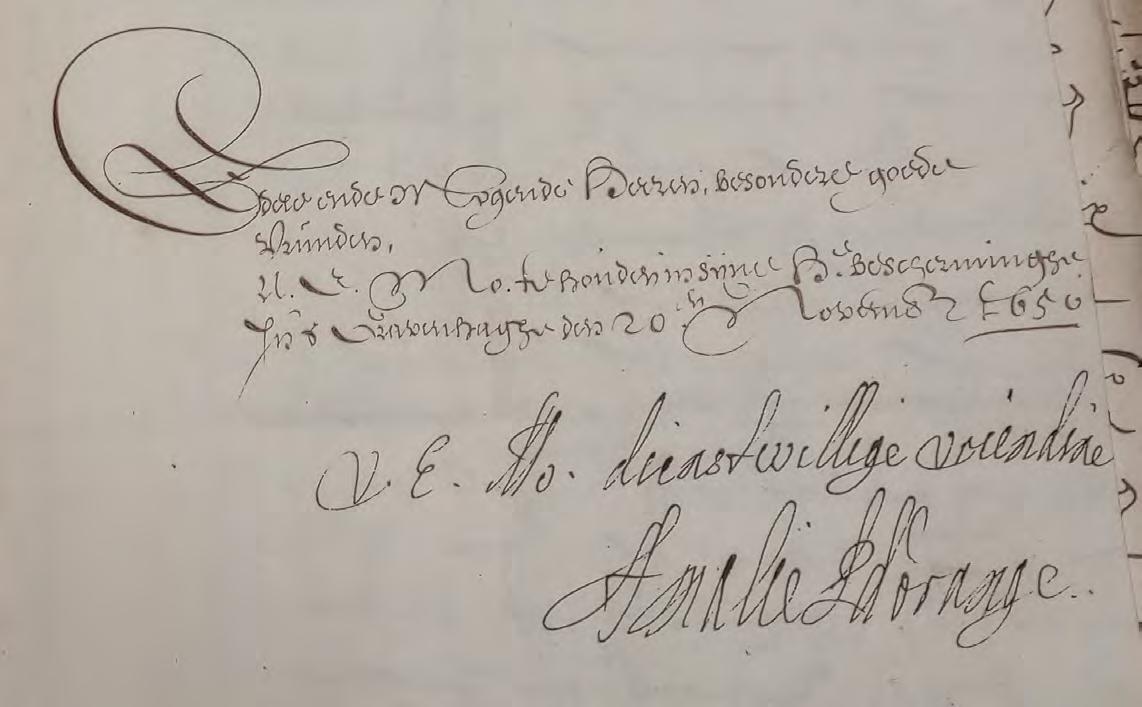 Edele ende Mogende Heeren, besondere goede
Vrunden,
U. E. Mo. te houden in sijne H.e bescherminghe.
In 's Gravenhaghe den 20.en Novemb 1650
V. E. Mo. dienstwillige vriendine
Amalie P d'orange.